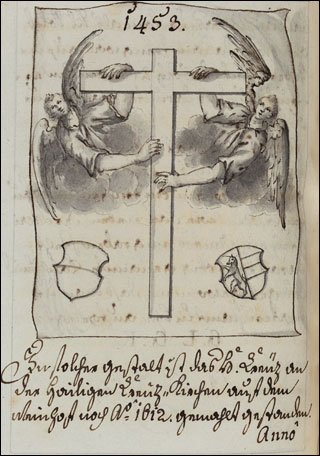 1453.
In solcher gestalt ist das H: Creütz an
der Heiligen Creütz-Kirchen auf dem
weinhof noch Aō. 1612. gemahlt gestanden.
Anno